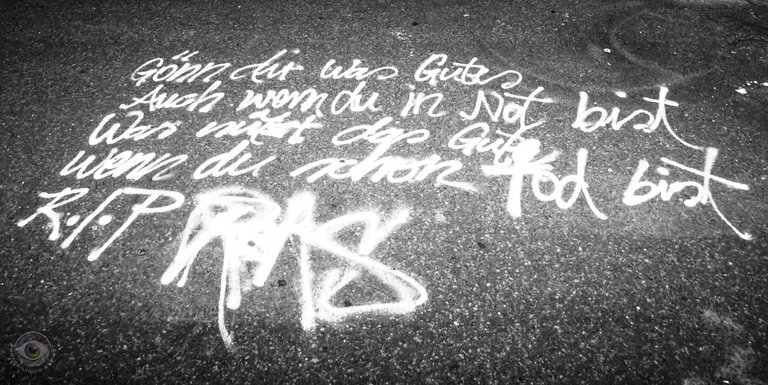 Gönn dir was Gutes
Auch wenn du in Not bist
Was nützt das Gute
wenn du schon Tod bist
R.I.P